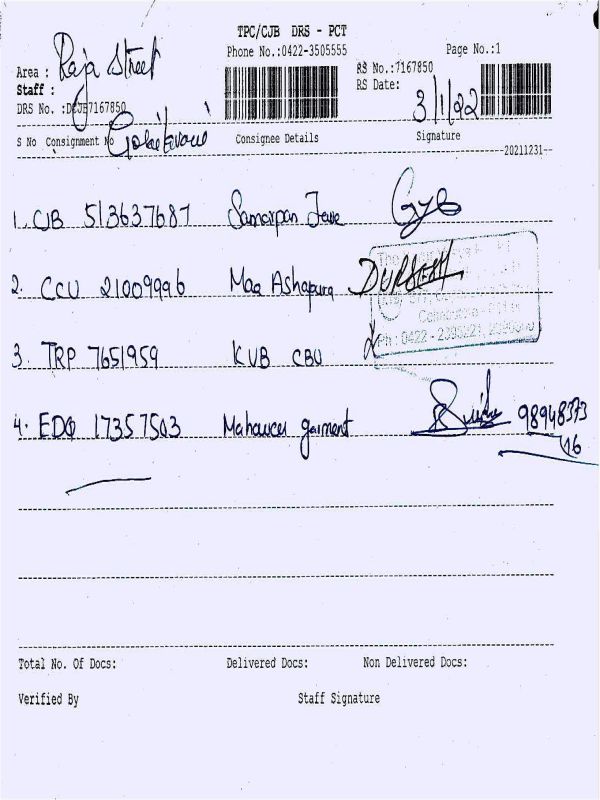 TPC/CJB DRS - PCT
Phone No.:0422-3505555 Page No.:1
Area : Raja Street RS No.:7167850
Staff : RS Date: 3/1/22
DRS No. :DCJB7167850
S No Consignment No Consignee Details Signature
20211231
1. CJB 513637687 Samarpan
2. CCU 21009996 Maa Ashapura
3. TRP 7651959 KVB CBU
4. EDQ 17357503 garment 98948373
16
Ph : 0422 -
Total No. Of Docs: Delivered Docs: Non Delivered Docs:
Verified By Staff Signature